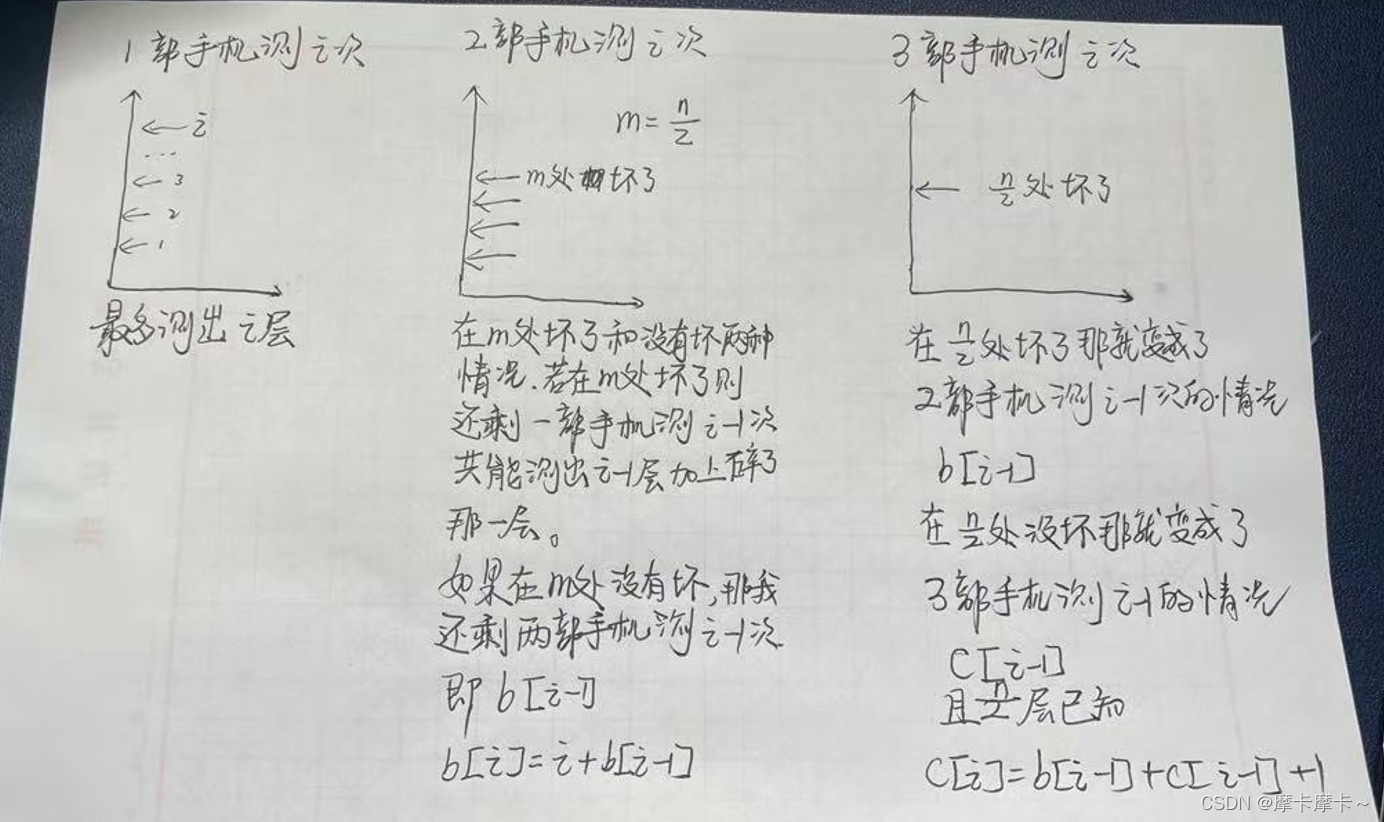 1部手机测i次
i
...
3
2
1
最多测出i层
2部手机测i次
m=n/2
m处坏了
在m处坏了和没有坏两种
情况.若在m处坏了则
还剩一部手机测i-1次
共能测出i-1层加上碎了
那一层。
如果在m处没有坏,那我
还剩两部手机测i-1次.
即b[i-1]
b[i]=i+b[i-1]
3部手机测i次
n/2处坏了
在n/2处坏了那就变成了
2部手机测i-1次的情况
b[i-1]
在n/2处没坏那就变成了
3部手机测i-1的情况
C[i-1]
且n/2层已知
C[i]=b[i-1]+C[i-1]+1
CSDN @摩卡摩卡~